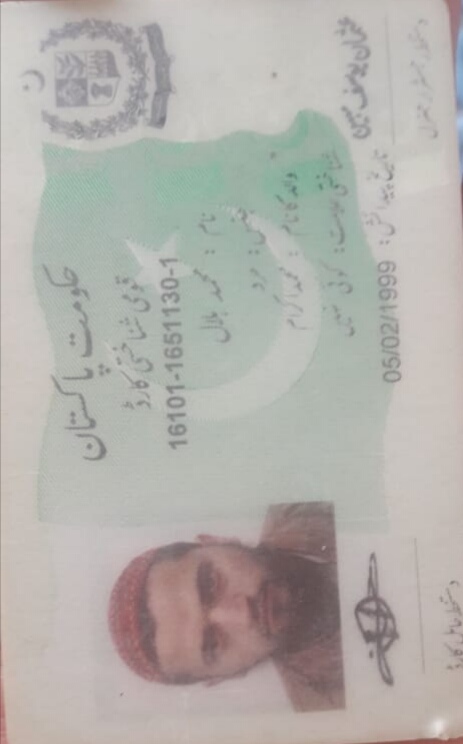 حکومتِ پاکستان
قومی شناختی کارڈ
16101-1651130-1
نام : محمد بلال
جنس : مرد
والد کا نام : محمد اکرام
شناختی علامت : کوئی نہیں
تاریخ پیدائش : 05/02/1999
عثمان یوسف مبین
دستخط رجسٹرار جنرل
دستخط حامل کارڈ
ن